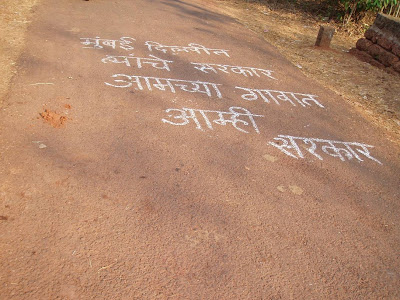 मुंबई दिल्लीत
त्यांचे सरकार
आमच्या गावात
आम्ही
सरकार